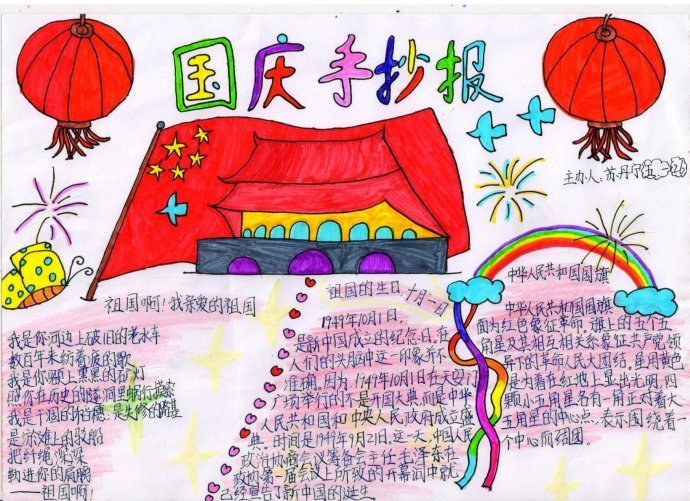 国庆手抄报
主办人：苏丹尔
祖国啊!我亲爱的祖国
我是你河边上破旧的老水车
数百年来纺着疲惫的歌
我是你额上熏黑的矿灯
照你在历史的隧洞里蜗行摸索
我是干瘪的稻穗，是失修的路基
是淤滩上的驳船
把纤绳深深
勒进你的肩膊
——祖国啊!
祖国的生日，十月一日
1949年10月1日，
是新中国成立的纪念日，在
人们的头脑中这一印象并不
准确。因为1949年10月1日在天安门
广场举行的不是开国大典，而是中华
人民共和国和中央人民政府成立盛
典。时间是1949年9月21日，这一天，中国人民
政治协商会议筹备会主任毛泽东在
政协第一届会议上所致的开幕词中就
已经宣告了新中国的诞生
中华人民共和国国旗
中华人民共和国国旗
面为红色象征革命，旗上的五个五
角星及其相互相关系象征共产党领
导下的革命人民大团结，星用黄色
是为着在红地上显出光明，四
颗小五角星各有一角正对着大
五角星的中心点，表示围绕着一
个中心而团团